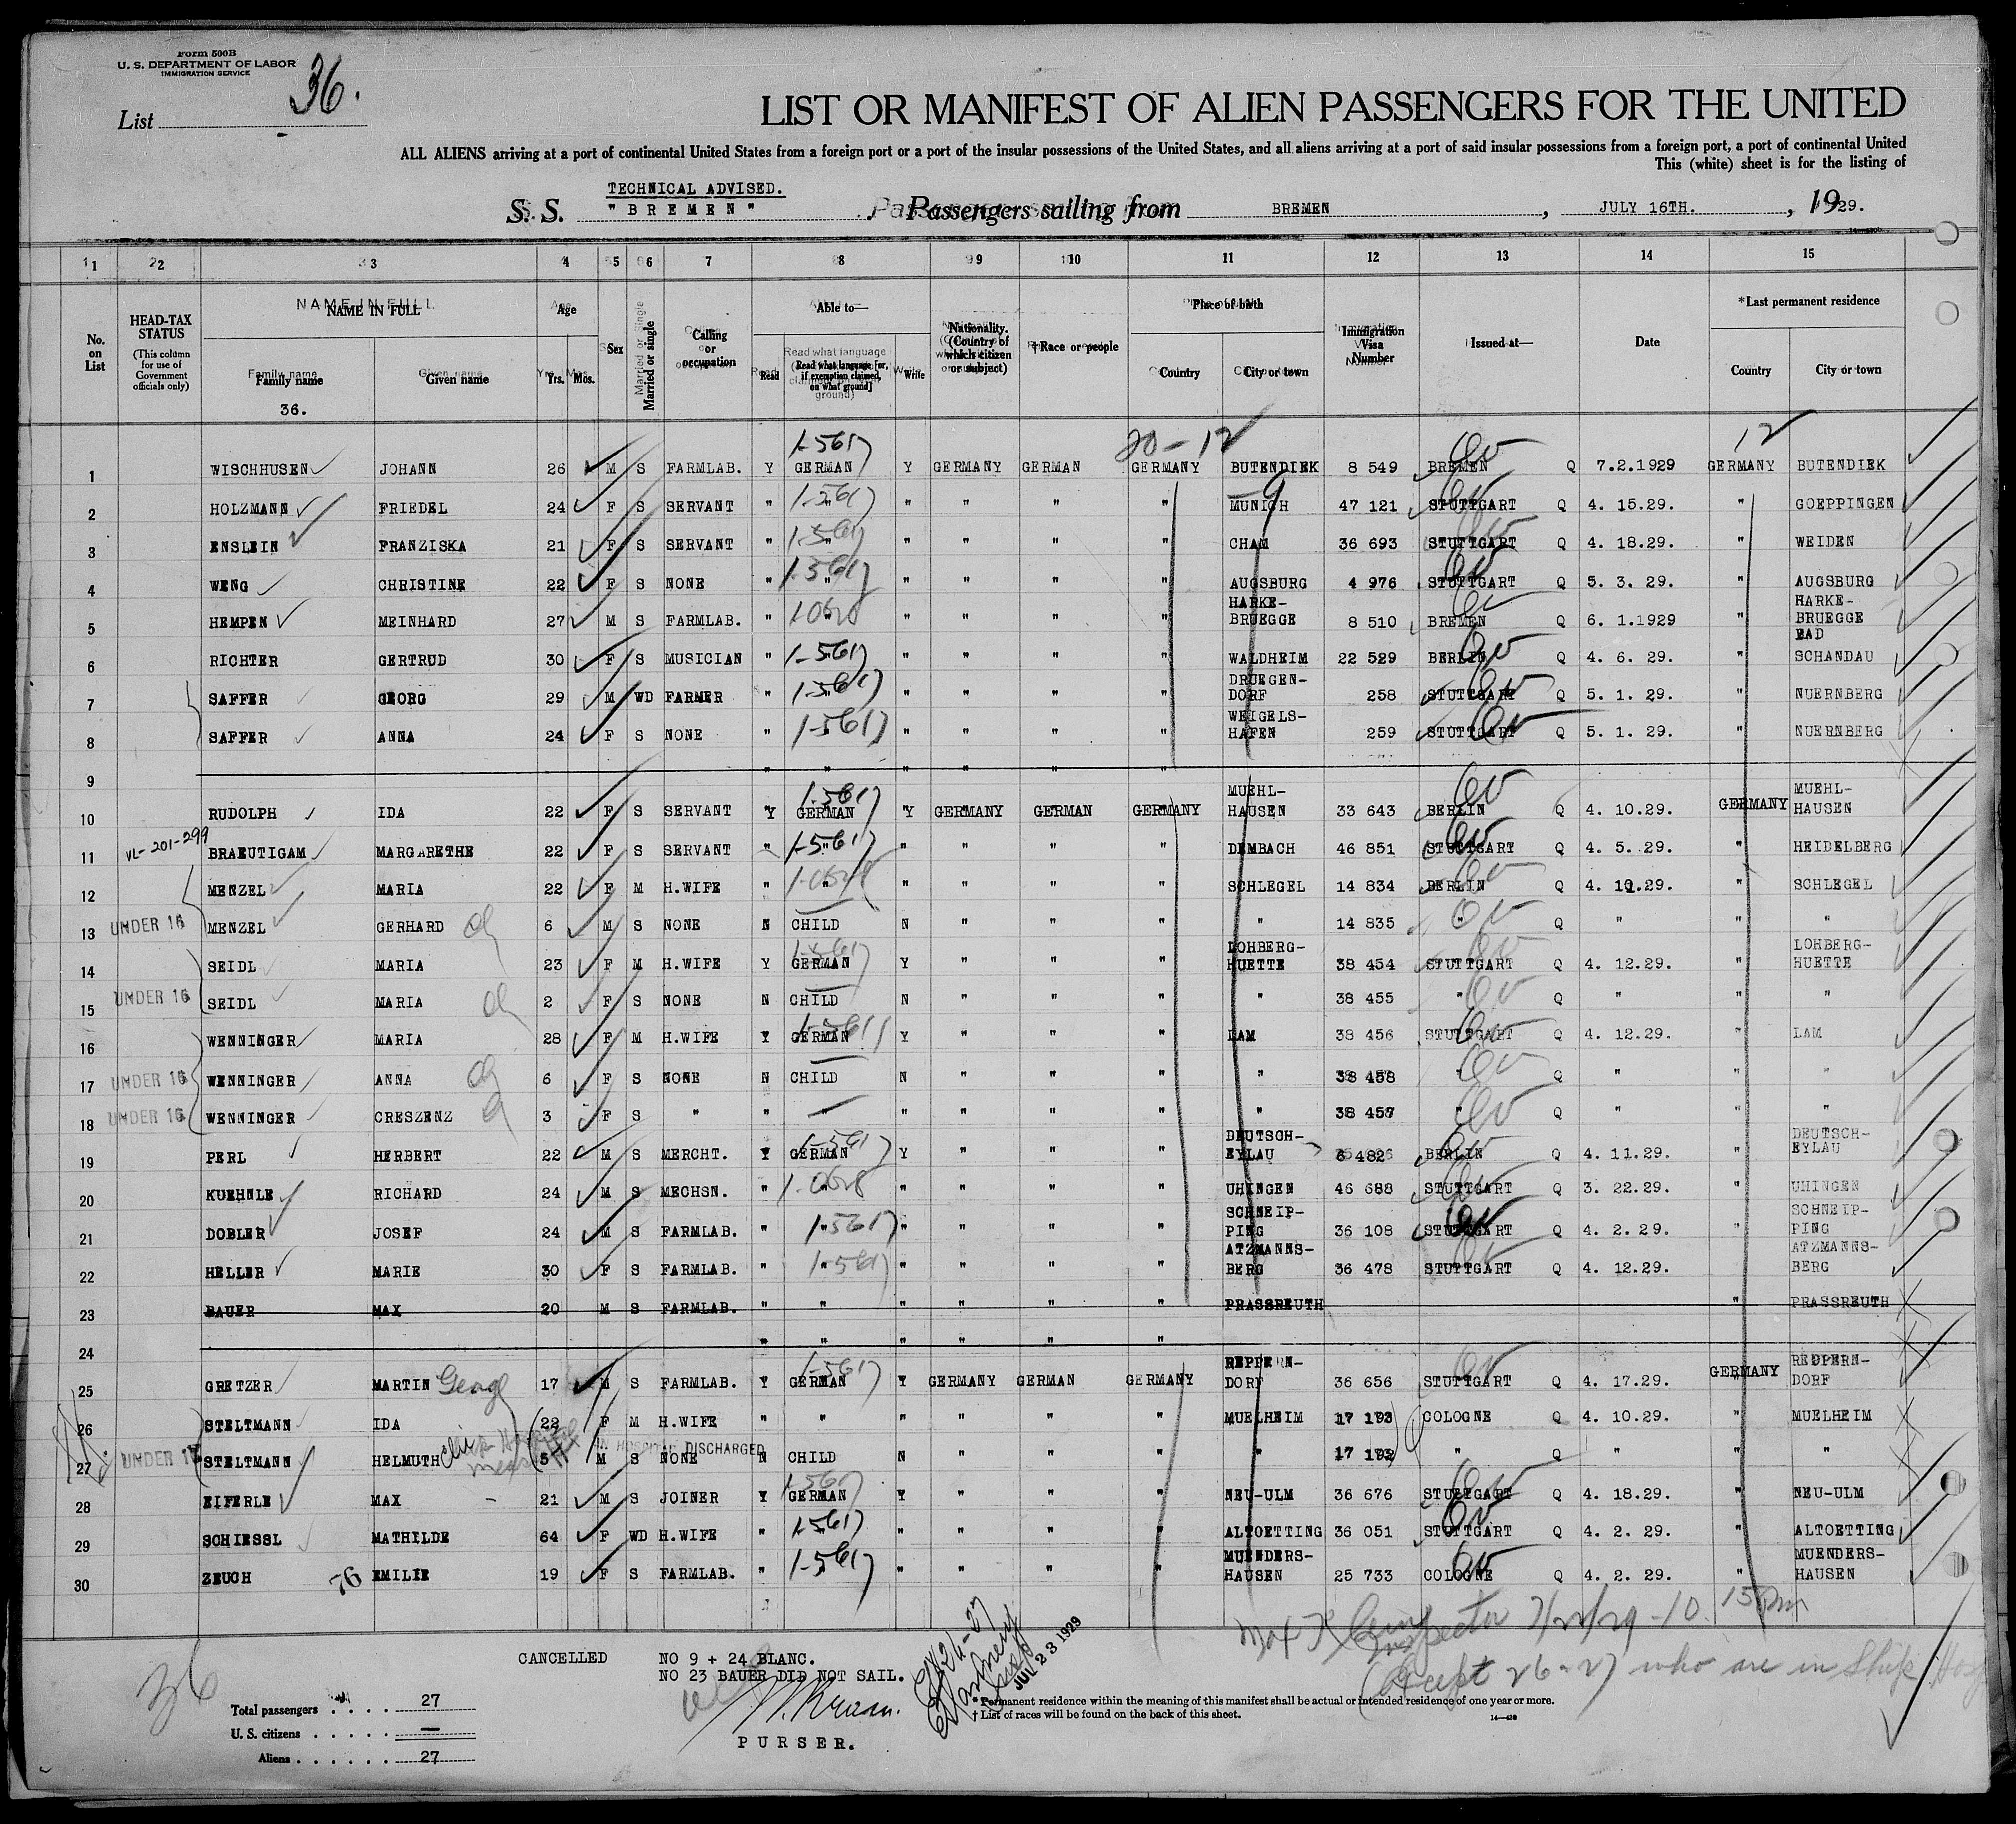 Form 500B
U. S. DEPARTMENT OF LABOR
IMMIGRATION SERVICE
List 36.
LIST OR MANIFEST OF ALIEN PASSENGERS FOR THE UNITED
ALL ALIENS arriving at a port of continental United States from a foreign port or a port of the insular possessions of the United States, and all aliens arriving at a port of said insular possessions from a foreign port, a port of continental United
This (white) sheet is for the listing of
TECHNICAL ADVISED.
S. S. "BREMEN" , Passengers sailing from BREMEN , JULY 16TH. , 1929.
1 2 3 4 5 6 7 8 9 10 11 12 13 14 15
No. on List
HEAD-TAX STATUS
(This column for use of Government officials only)
NAME IN FULL
Family name
Given name
36.
Age
Yrs. Mos.
Sex
Married or single
Calling or occupation
Able to—
Read
Read what language [or, if exemption claimed, on what ground]
Write
Nationality. (Country of which citizen or subject)
†Race or people
Place of birth
Country
City or town
Immigration Visa Number
Issued at—
Date
*Last permanent residence
Country
City or town
20-12
12
1 WISCHHUSEN JOHANN 26 M S FARMLAB. Y GERMAN Y GERMANY GERMAN GERMANY BUTENDIEK 8 549 BREMEN Q 7.2.1929 GERMANY BUTENDIEK
2 HOLZMANN FRIEDEL 24 F S SERVANT " " " " " " MUNICH 47 121 STUTTGART Q 4. 15.29. " GOEPPINGEN
3 ENSLEIN FRANZISKA 21 F S SERVANT " " " " " " CHAM 36 693 STUTTGART Q 4. 18.29. " WEIDEN
4 WENG CHRISTINE 22 F S NONE " " " " " " AUGSBURG 4 976 STUTTGART Q 5. 3. 29. " AUGSBURG
5 HEMPEN MEINHARD 27 M S FARMLAB. " " " " " " HARKE-BRUEGGE 8 510 BREMEN Q 6. 1.1929 " HARKE-BRUEGGE
6 RICHTER GERTRUD 30 F S MUSICIAN " " " " " " WALDHEIM 22 529 BERLIN Q 4. 6. 29. " BAD SCHANDAU
7 SAFFER GEORG 29 M WD FARMER " " " " " " DRUEGEN-DORF 258 STUTTGART Q 5. 1. 29. " NUERNBERG
8 SAFFER ANNA 24 F S NONE " " " " " " WEIGELS-HAFEN 259 STUTTGART Q 5. 1. 29. " NUERNBERG
9 " " " " "
10 RUDOLPH IDA 22 F S SERVANT Y GERMAN Y GERMANY GERMAN GERMANY MUEHL-HAUSEN 33 643 BERLIN Q 4. 10.29. GERMANY MUEHL-HAUSEN
11 VL-201-299 BRAEUTIGAM MARGARETHE 22 F S SERVANT " " " " " " DEMBACH 46 851 STUTTGART Q 4. 5. 29. " HEIDELBERG
12 MENZEL MARIA 22 F M H.WIFE " " " " " " SCHLEGEL 14 834 BERLIN Q 4. 10.29. " SCHLEGEL
13 UNDER 16 MENZEL GERHARD 6 M S NONE N CHILD N " " " " 14 835 " Q " " "
14 SEIDL MARIA 23 F M H.WIFE Y GERMAN Y " " " LOHBERG-HUETTE 38 454 STUTTGART Q 4. 12.29. " LOHBERG-HUETTE
15 UNDER 16 SEIDL MARIA 2 F S NONE N CHILD N " " " " 38 455 " Q " " "
16 WENNINGER MARIA 28 F M H.WIFE Y GERMAN Y " " " LAM 38 456 STUTTGART Q 4. 12.29. " LAM
17 UNDER 16 WENNINGER ANNA 6 F S NONE N CHILD N " " " " 38 458 Q " " "
18 UNDER 16 WENNINGER CRESZENZ 3 F S " " " " " " " " 38 457 " Q " " "
19 PERL HERBERT 22 M S MERCHT. Y GERMAN Y " " " DEUTSCH-EYLAU 482 BERLIN Q 4. 11.29. " DEUTSCH-EYLAU
20 KUEHNLE RICHARD 24 M S MECHSN. " " " " " " UHINGEN 46 688 STUTTGART Q 3. 22.29. " UHINGEN
21 DOBLER JOSEF 24 M S FARMLAB. " " " " " " SCHNEIP-PING 36 108 STUTTGART Q 4. 2. 29. " SCHNEIP-PING
22 HELLER MARIE 30 F S FARMLAB. " " " " " " ATZMANNS-BERG 36 478 STUTTGART Q 4. 12.29. " ATZMANNS-BERG
23 BAUER MAX 20 M S FARMLAB. " " " " " " PRASSREUTH " PRASSREUTH
24 " " " " " "
25 GRETZER MARTIN George 17 M S FARMLAB. Y GERMAN Y GERMANY GERMAN GERMANY REPPERN-DORF 36 656 STUTTGART Q 4. 17.29. GERMANY REPPERN-DORF
26 STELTMANN IDA 22 F M H.WIFE " " " " " " MUELHEIM 17 193 COLOGNE Q 4. 10.29. " MUELHEIM
27 UNDER 16 STELTMANN HELMUTH 5 M S NONE N CHILD N " " " " 17 192 " Q " " "
HOSPITAL DISCHARGED
28 EIFERLE MAX - 21 M S JOINER Y GERMAN Y " " " NEU-ULM 36 676 STUTTGART Q 4. 18.29. " NEU-ULM
29 SCHIESSL MATHILDE 64 F WD H.WIFE " " " " " " ALTOETTING 36 051 STUTTGART Q 4. 2. 29. " ALTOETTING
30 ZEUCH 76 EMILIE 19 F S FARMLAB. " " " " " " MUENDERS-HAUSEN 25 733 COLOGNE Q 4. 2. 29. " MUENDERS-HAUSEN
Inspector 7/22/29 - 10 15 pm
(Except 26-27 who are in Ship Hosp
JUL 23 1929
CANCELLED NO 9 + 24 BLANC.
NO 23 BAUER DID NOT SAIL.
PURSER.
36
Total passengers . . . . 27
U. S. citizens . . . . . —
Aliens . . . . . . 27
* Permanent residence within the meaning of this manifest shall be actual or intended residence of one year or more.
† List of races will be found on the back of this sheet.